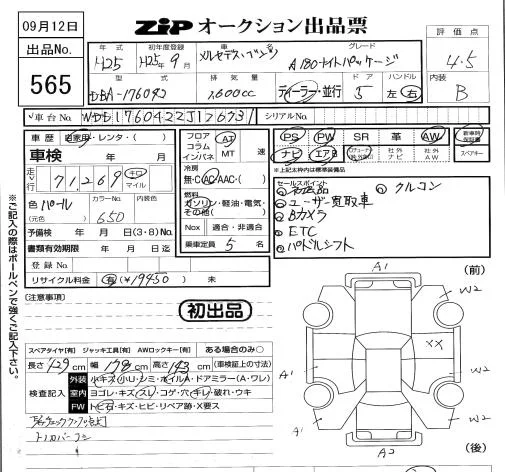 09月12日
ZIP オークション出品票
出品No.
565
年式 初年度登録 車名 グレード
H25 H25年9月 メルセデス・ベンツ A180ナイトパッケージ
型式 排気量 ドア ハンドル
DBA-176042 1,600cc ディーラー・並行 5 左 右
評価点
4.5
内装
B
車台No. WDD1760422J176731 シリアルNo.
車歴 自家用・レンタ・( )
車検 年 月
走行 71,269 キロ マイル
色 (元色) パール カラーNo. 650 内装色
予備検 年 月 日(3・8)No.
書類有効期限 年 月 日迄
登録No.
リサイクル料金 有(¥19450) 未
フロア コラム インパネ AT MT 速
冷房
無・C・AC・AAC・( )
燃料
ガソリン・軽油・電気・その他( )
Nox 適合・非適合
乗車定員 5 名
PS PW SR 革 AW 新車時保証書
ナビ エアB 社外ナビ 社外AW スペアキー
*上記太枠内は標準装備品
セールスポイント
クルコン
ユーザー買取車
Bカメラ
ETC
パドルシフト
※ご記入の際はボールペンで強くご記入下さい。
(注意事項)
初出品
スペアタイヤ[有] ジャッキ工具[有] AWロックキー[有] ある場合のみ○
長さ 429 cm 幅 178 cm 高さ 143 cm (車検証上の寸法)
検査記入
外装 小キズ・小U・シミ・ホイルA・ドアミラー(A・ワレ)
室内 ヨゴレ・キズ・スレ・コゲ・穴・キレ・破れ・ウキ
FW ト石・キズ・ヒビ・リペア跡・X要ス
(前)
A1
W2
XX
A1
W2
W2
A1
A2
(後)